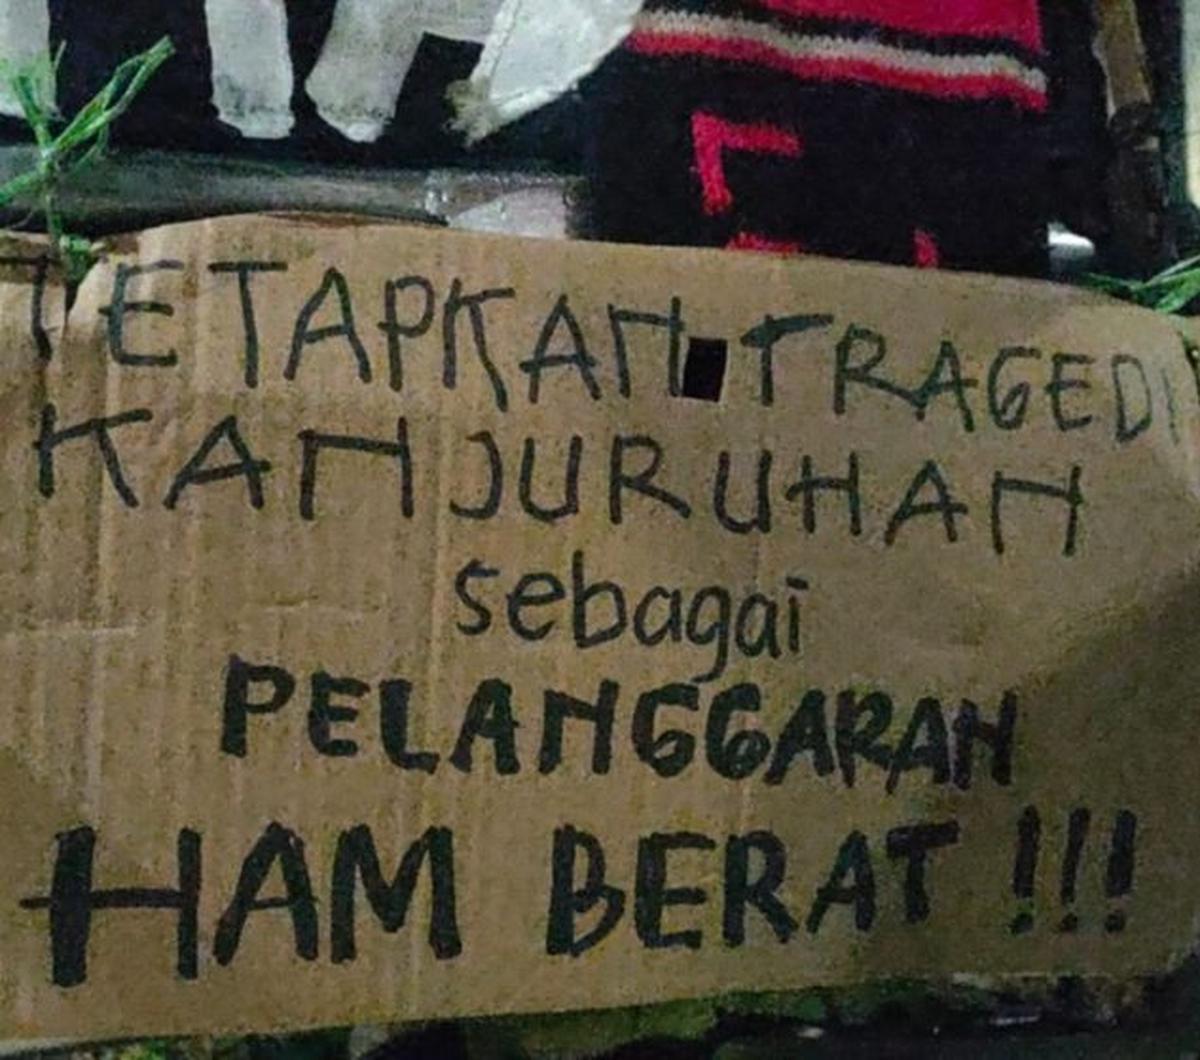 TETAPKAN TRAGEDI
KANJURUHAN
sebagai
PELANGGARAN
HAM BERAT !!!